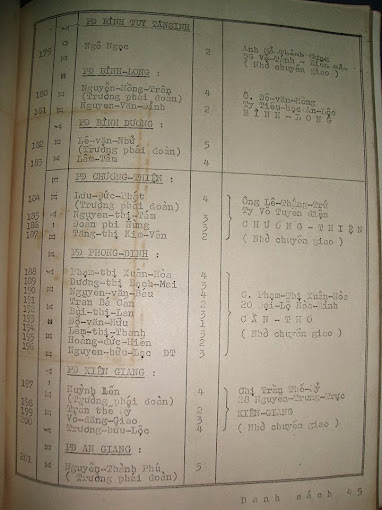 PĐ BÌNH TUY TÁNSINH
179 Ngô Ngọc 2
( Nhờ chuyển giao )
PĐ BÌNH-LONG :
180 Nguyễn-Hồng-Trân 4
(Trưởng phái đoàn)
181 Nguyễn-Văn-Bình 2
Ô. Đỗ-văn-Hồng
Ty Tiểu-học An-Lộc
BÌNH-LONG
PĐ BÌNH DƯƠNG :
182 Lê-văn-Nhử 5
(Trưởng phái đoàn)
183 Lâm-Tâm 4
PĐ CHƯƠNG-THIỆN :
184 Lưu-Đức-Phát 4
(Trưởng phái đoàn)
185 Nguyễn-thị-Tám 3
186 Đoàn phi Hùng 3
187 Tăng-thị Kim-Vân 2
Ông Lê-Thắng-Trử
Ty Vô Tuyến điện
CHƯƠNG-THIỆN
( Nhờ chuyển giao )
PĐ PHONG-DINH :
188 Phạm-thị Xuân-Hòa 4
189 Dương-thị Bạch-Mai 3
190 Nguyễn-văn-Sáu 4
191 Trần Bá Cẩn 2
192 Bùi-thị-Lan 3
193 Đỗ-văn-Hữu 1
194 Lâm-thị-Thanh 3
195 Hoàng-đức-Hiền 2
196 Nguyễn-hữu-Lộc DT 3
Ô. Phạm-Thị Xuân-Hòa
20 Đại-Lộ Hòa-Bình
CẦN-THƠ
( Nhờ chuyển giao )
PĐ KIÊN GIANG :
197 Huỳnh Lến 4
(Trưởng phái đoàn)
198 Trần thế Tỷ 2
199 Võ-đăng-Giao 3
200 Trương-hữu-Lộc 4
Chị Trần Thế-Tỷ
28 Nguyễn-Trung-Trực
KIÊN-GIANG
( Nhờ chuyển giao )
PĐ AN GIANG
201 Nguyễn-Thành Phú 5
( Trưởng phái đoàn)
Danh sách 45